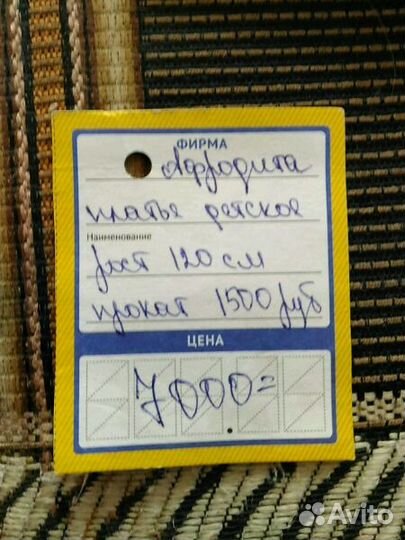 ФИРМА
Афродита
платье детское
Наименование
рост 120 см
прокат 1500 руб
ЦЕНА
7000=
Avito